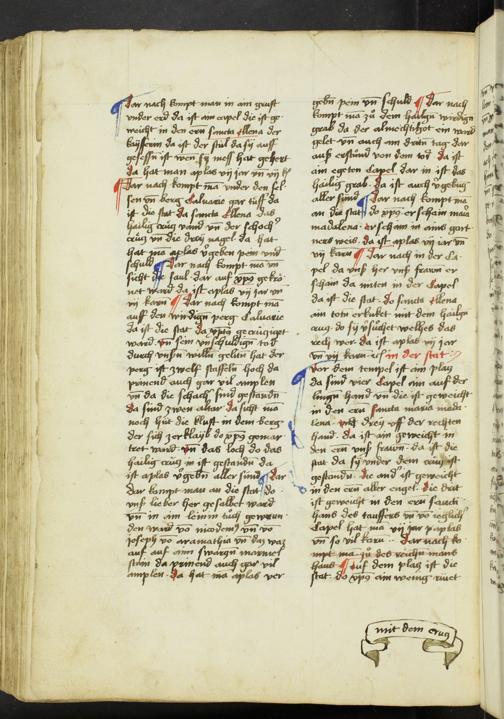 Dar nach kompt man in am gruft
vnder erd da ist am capel die ist ge
weicht in den ern sancta Elena der
kayserin da ist der stul da sy auff
gesessen ist wen sy mess hat gehort
da hat man aplas vij jar vn vij k
Dar nach kompt ma vnder den fel
sen vn berg Caluarie gar tuff da
ist die stat da sancta Elena das
hailig crutz vand vn der schoch
crutz vn die drey nagel da hat
hat ma aplas vgeben pein vnd
schuld Dar nach kompt ma vn
sicht die saul dar auf xpo gekro
net ward da ist aplas vij jar vn
vij karn Dar nach kompt ma
auff den wirdigen perg Caluarie
da ist die stat da xpus gecruziget
ward vn sein vnschuldigen tod
durch vnsern willen geliten hat der
perg ist zwelf staffeln hoch da
prinend auch gar vil amplen
vn da die schach sind gestanden
da sind zwen altar da sicht ma
noch hut die kluft in dem berg
der sich zerklaub do xpo gemar
tret ward vn das loch do das
hailig crutz in ist gestanden da
ist aplas vgeben aller sund
dar kompt man an die stat do
vnser lieber her gesalbet ward
vn in ain leinin tuch gewun
den ward vo nicodemo vn vo
Joseph vo aramathia vn das waz
auf auf aim swarczen marmel
stain da prinend auch gar vil
amplen da hat ma aplas ver
geben pein vn schuld Dar nach
kompt ma zu dem hailgen wirdigen
grab da der almechtigot ein ward
gelet vn auch am driten tag dar
auß erstund von dem tod da ist
ain egeten Capel dar in ist das
hailig grab da ist auch vgebung
aller sund Dar nach kompt ma
an die stat do xpo erschain maria
madalena erschain in ains gart
ners weis da ist aplas vij jar vn
vij karn Dar nach in der Ca
pel da vnser her vnser frawen er
schain da miten in der Capel
da ist die stat do sancta Elena
ain toten erkuket mit dem hailgen
crutz do sy vsuchet welhes das
recht wer da ist aplas vij jar
vn vij karn in der stat
Vor dem tempel ist ain platz
da sind vier Capel ain auf der
lingen hand vn die ist geweicht
in den ern sancta maria mada
lena vnd drey auff der rechten
hand da ist ain geweicht in
den ern vnser frawen da ist die
stat da sy vnder dem crutz ist
gestanden die and ist geweicht
in den ern aller engel die drit
ist geweicht in den ern sant
hans des tauffers vn vo ieglicher
Capel hat ma vij jar aplas
vn so vil karn Dar nach ko
mpt ma zu des reichen mans
haus Auf dem platz ist die
stat do xpo ain wenig ruet
mit dem crutz